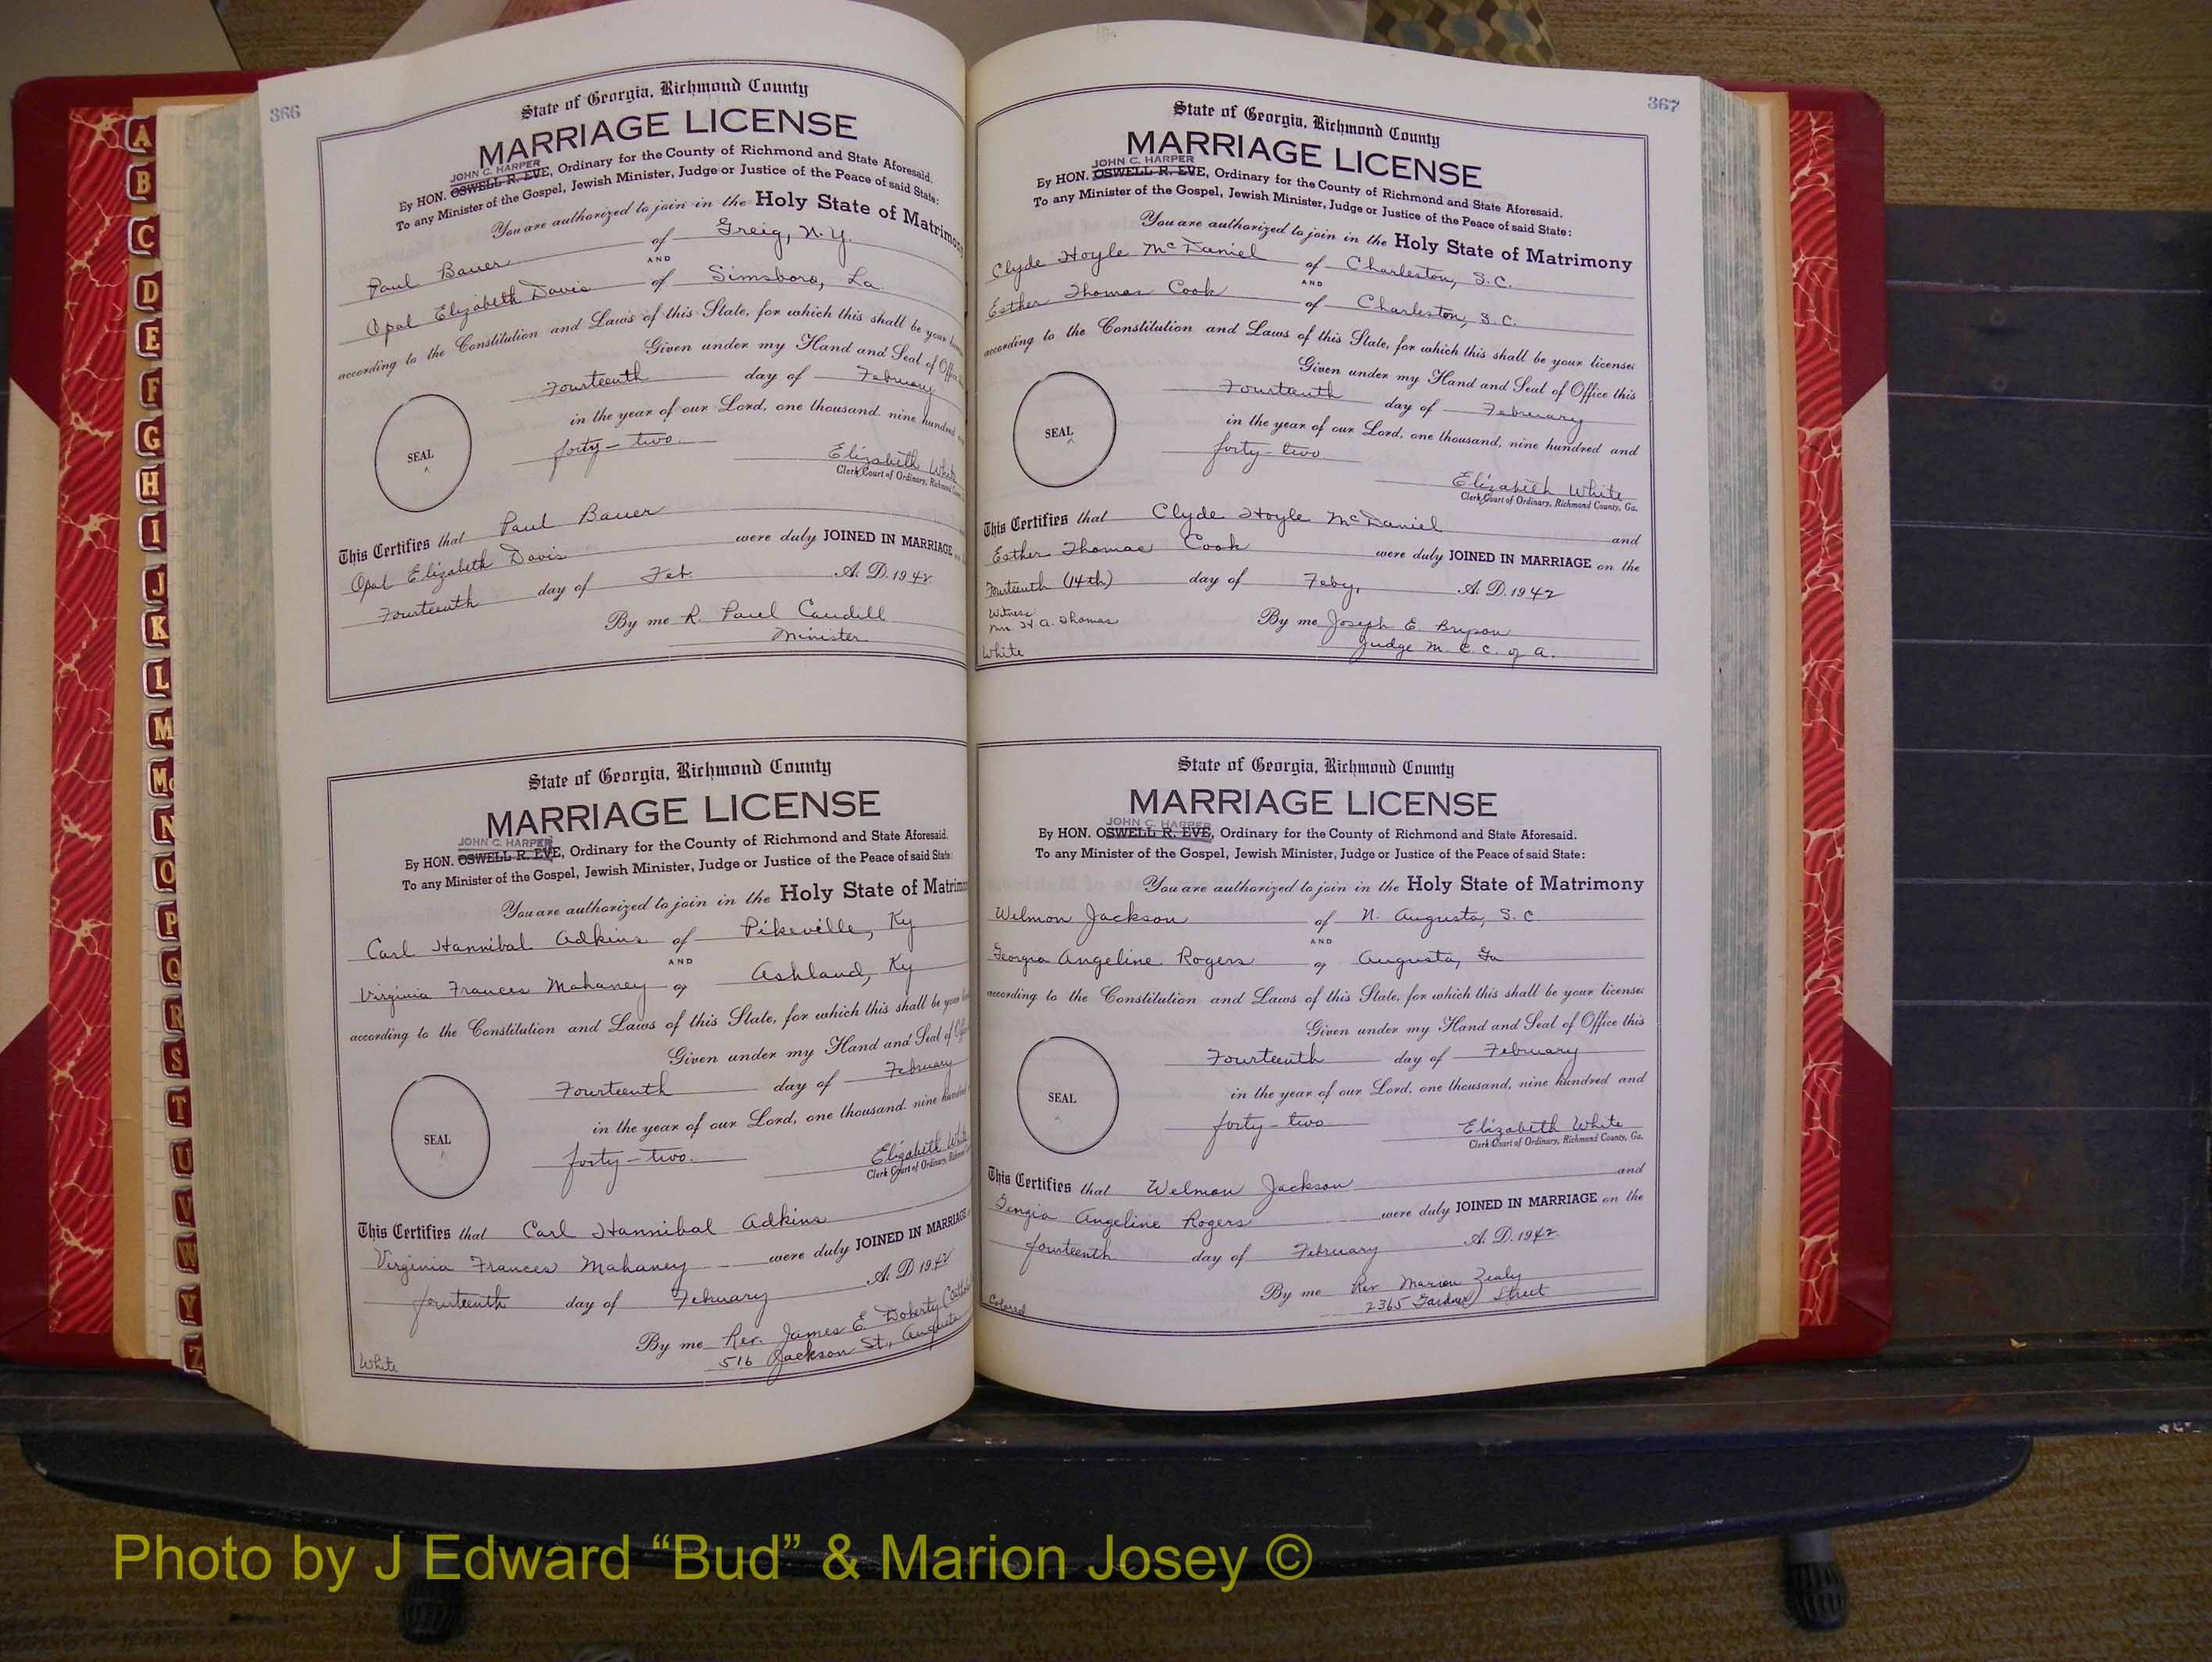 366
State of Georgia, Richmond County
MARRIAGE LICENSE
JOHN C. HARPER
By HON. OSWELL R. EVE, Ordinary for the County of Richmond and State Aforesaid.
To any Minister of the Gospel, Jewish Minister, Judge or Justice of the Peace of said State:
You are authorized to join in the Holy State of Matrimony
Paul Bauer of Greig, N.Y.
AND
Opal Elizabeth Davis of Simsboro, La.
according to the Constitution and Laws of this State, for which this shall be your
Given under my Hand and Seal of Office
Fourteenth day of February
in the year of our Lord, one thousand, nine hundred
SEAL
forty-two.
Elizabeth White
Clerk Court of Ordinary, Richmond
This Certifies that Paul Bauer
Opal Elizabeth Davis were duly JOINED IN MARRIAGE
Fourteenth day of Feb. A. D. 1942
By me R. Paul Caudill
Minister
State of Georgia, Richmond County
MARRIAGE LICENSE
JOHN C. HARPER
By HON. OSWELL R. EVE, Ordinary for the County of Richmond and State Aforesaid.
To any Minister of the Gospel, Jewish Minister, Judge or Justice of the Peace of said State:
You are authorized to join in the Holy State of Matrimony
Carl Hannibal Adkins of Pikeville, Ky
AND
Virginia Frances Mahaney of Ashland, Ky
according to the Constitution and Laws of this State, for which this shall be your
Given under my Hand and Seal of
Fourteenth day of February
in the year of our Lord, one thousand, nine hundred
SEAL
forty-two.
Elizabeth White
Clerk Court of Ordinary,
This Certifies that Carl Hannibal Adkins
Virginia Frances Mahaney were duly JOINED IN MARRIAGE
fourteenth day of February A. D. 1942
By me Rev. James E. Doherty
516 Jackson St., Augusta
White
367
State of Georgia, Richmond County
MARRIAGE LICENSE
JOHN C. HARPER
By HON. OSWELL R. EVE, Ordinary for the County of Richmond and State Aforesaid.
To any Minister of the Gospel, Jewish Minister, Judge or Justice of the Peace of said State:
You are authorized to join in the Holy State of Matrimony
Clyde Hoyle McDaniel of Charleston, S.C.
AND
Esther Thomas Cook of Charleston, S.C.
according to the Constitution and Laws of this State, for which this shall be your license
Given under my Hand and Seal of Office this
Fourteenth day of February
in the year of our Lord, one thousand, nine hundred and
SEAL
forty-two
Elizabeth White
Clerk Court of Ordinary, Richmond County, Ga.
This Certifies that Clyde Hoyle McDaniel and
Esther Thomas Cook were duly JOINED IN MARRIAGE on the
Fourteenth (14th) day of Feby, A. D. 1942
Witness:
Mrs. H. A. Thomas
By me Joseph E. Bryson
Judge M. C. C. of A.
White
State of Georgia, Richmond County
MARRIAGE LICENSE
JOHN C. HARPER
By HON. OSWELL R. EVE, Ordinary for the County of Richmond and State Aforesaid.
To any Minister of the Gospel, Jewish Minister, Judge or Justice of the Peace of said State:
You are authorized to join in the Holy State of Matrimony
Welmon Jackson of N. Augusta, S.C.
AND
Georgia Angeline Rogers of Augusta, Ga
according to the Constitution and Laws of this State, for which this shall be your license
Given under my Hand and Seal of Office this
Fourteenth day of February
in the year of our Lord, one thousand, nine hundred and
SEAL
forty-two
Elizabeth White
Clerk Court of Ordinary, Richmond County, Ga.
This Certifies that Welmon Jackson and
Georgia Angeline Rogers were duly JOINED IN MARRIAGE on the
fourteenth day of February A. D. 1942.
By me Rev Marion Zealy
2365 Gardner Street
Colored
A
B
C
D
E
F
G
H
I
J
K
L
M
Mc
N
O
P
Q
R
S
T
U
V
W
Y
Z
Photo by J Edward “Bud” & Marion Josey ©